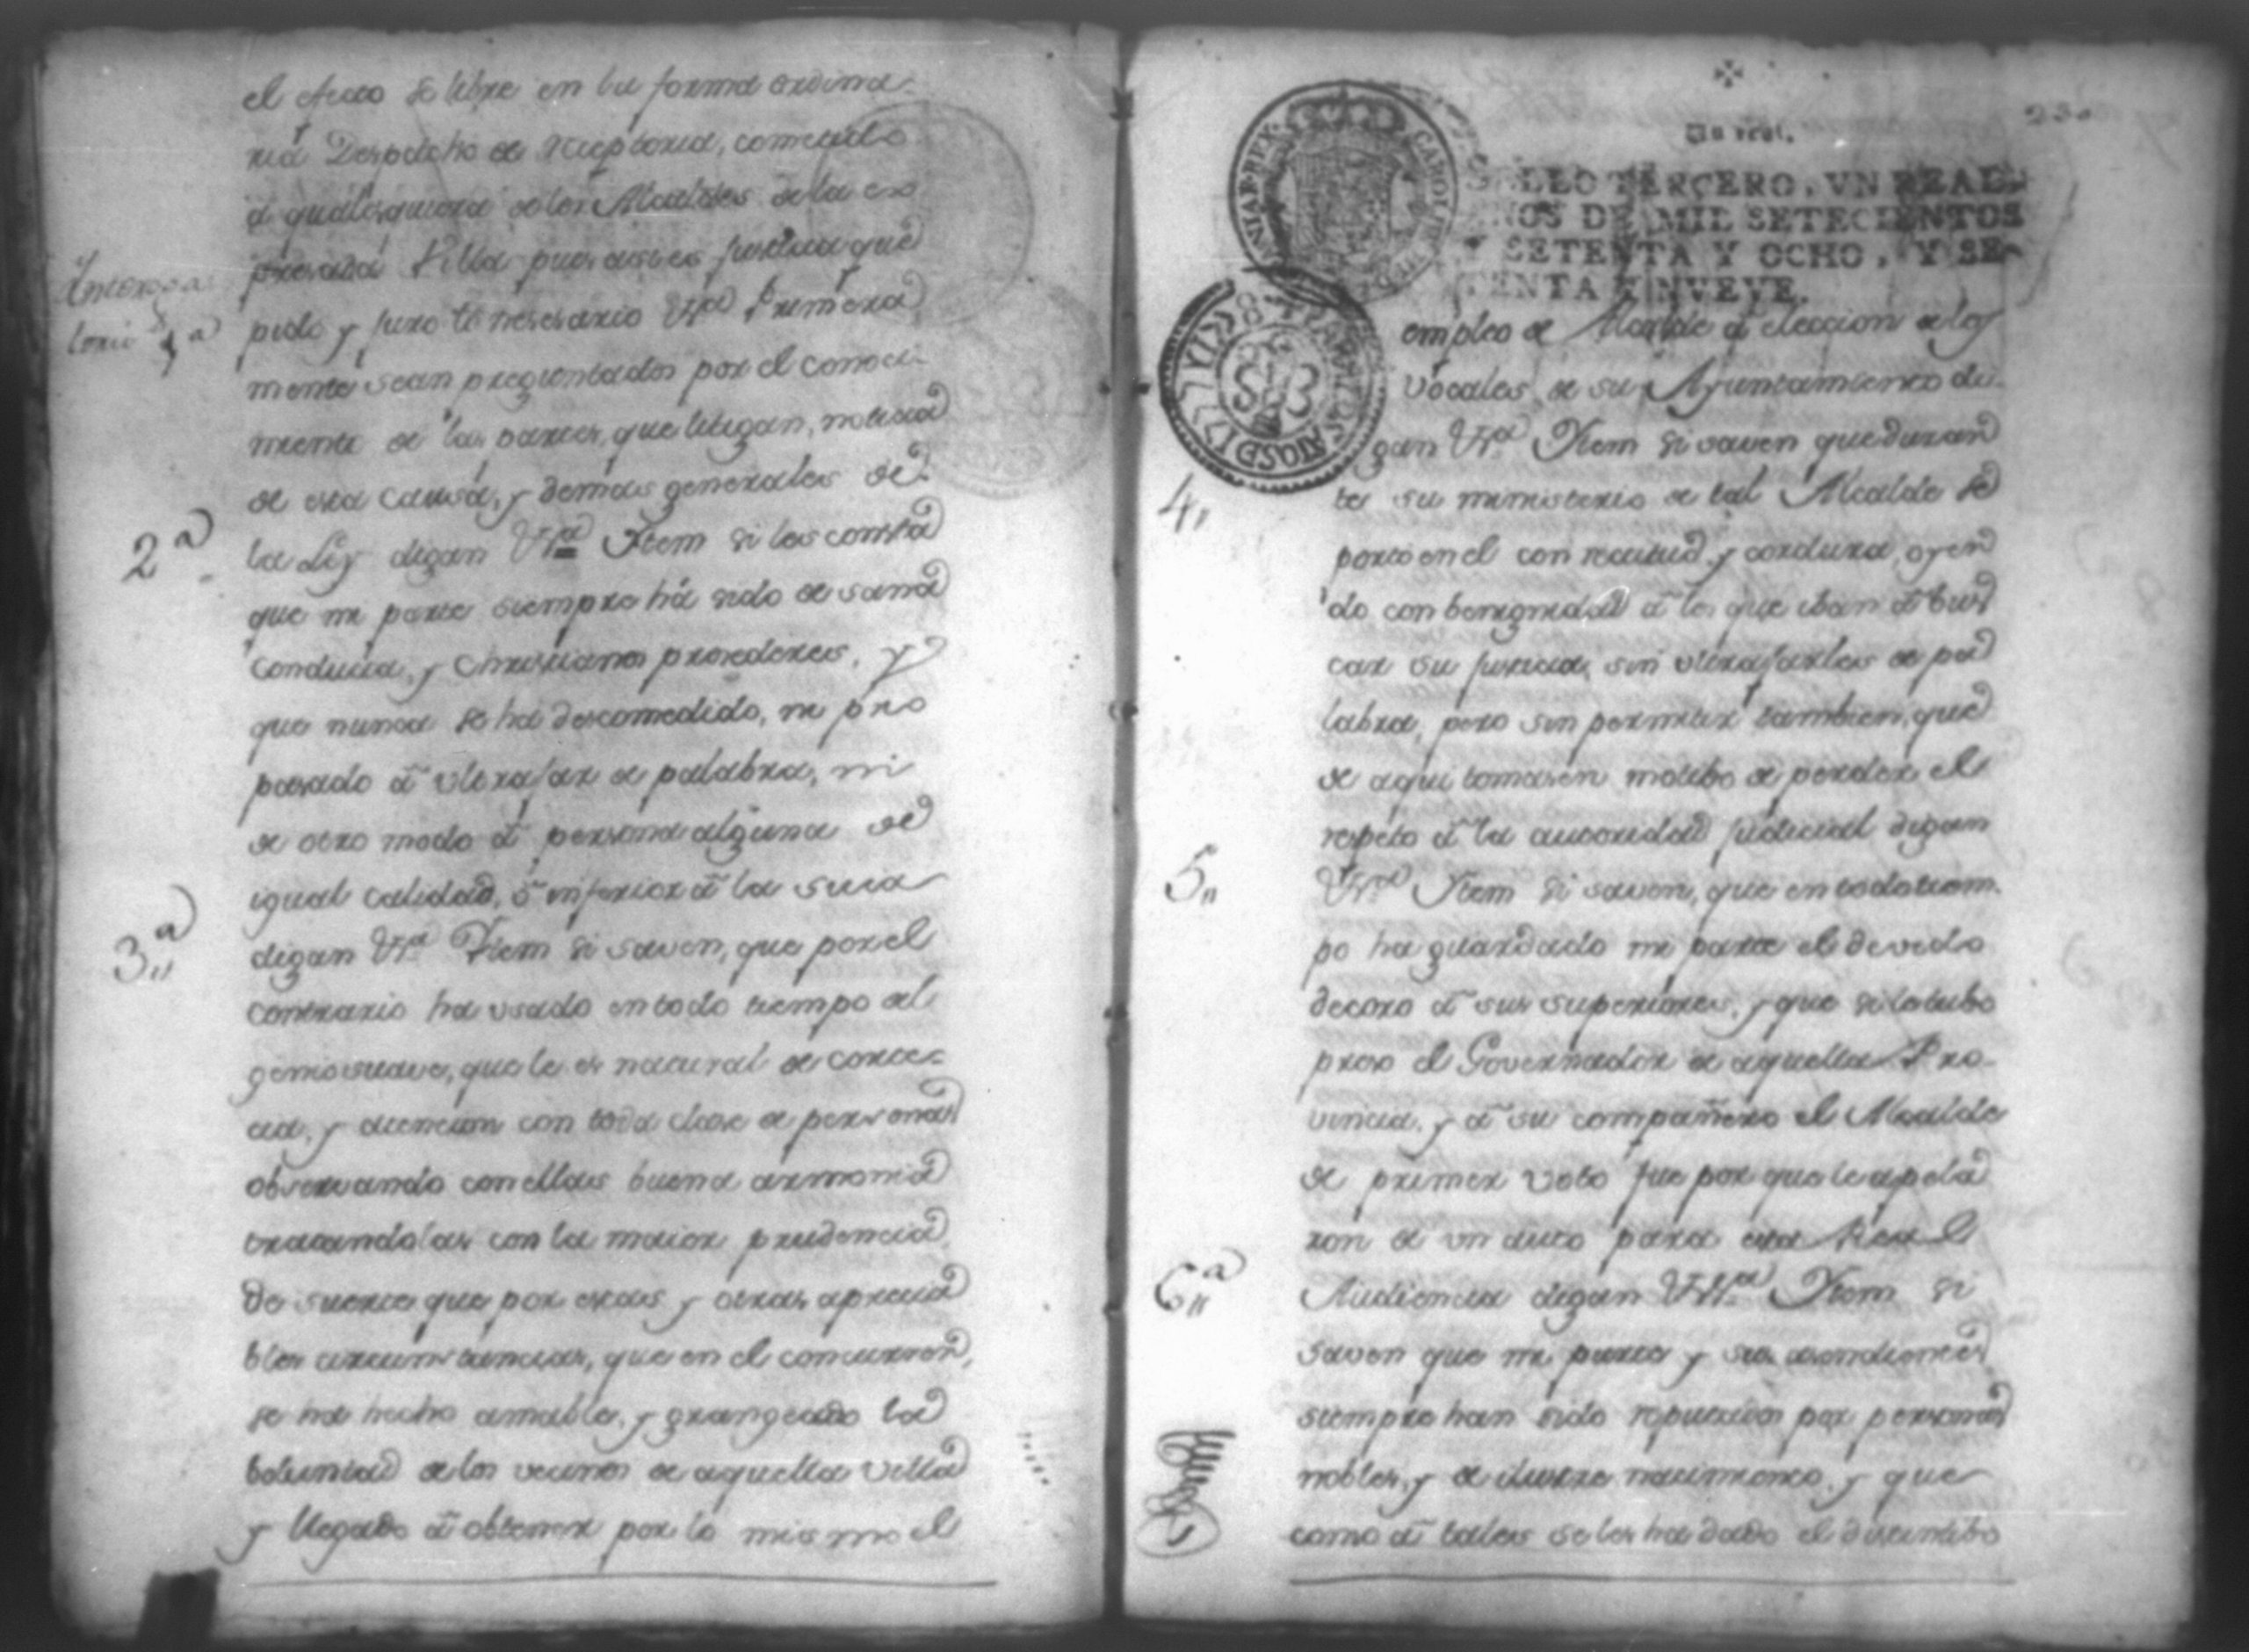 el efecto se libre en la forma ordina-
ria Despacho de receptoria, cometido
à qualesquiera de los Alcaldes de la ex
presada Villa pues asi es justicia que
Interroga
torio 1ª
pido y juro lo necesario Vtª Primera
mente sean preguntados por el conoci-
miento de las partes, que litigan, noticia
de esta causa, y demas generales de
2ª
la Ley digan Vtª Item si les consta
que mi parte siempre há sido de sana
conducta, y christianos procederes, y
que nunca se ha descomedido, ni pro
pasado â ultrajar de palabra, ni
de otro modo â persona alguna de
igual calidad, ô inferior â la suia
3ª
digan Vtª Item si saven, que por el
contrario ha usado en todo tiempo del
genio suave, que le es natural de corte-
cia, y atencion con toda clase de personas
observando con ellas buena armonia
tratandolas con la maior prudencia
de suerte que por estas y otras aprecia
bles circunstancias, que en el concurren,
se ha hecho amable, y grangeado la
boluntad de los vecinos de aquella Villa
y llegado â obtener por lo mismo el
Un real.
SELLO TERCERO, VN REAL,
AÑOS DE MIL SETECIENTOS
Y SETENTA Y OCHO, Y SE-
TENTA Y NVEVE.
empleo de Alcalde â eleccion de los
vocales de su Ayuntamiento di-
gan Vtª Item si saven que duran
4,,
te su ministerio de tal Alcalde se
porto en el con rectitud, y cordura, oyen
do con benignidad â los que iban â bus
car su justicia, sin ultrajarles de pa
labra, pero sin permitir tambien, que
de aqui tomasen motibo de perder el
respeto â la autoridad judicial digan
5,,
Vtª Item si saven, que en todo tiem-
po ha guardado mi parte el devido
decoro â sus superiores, y que si lo tubo
preso el Governador de aquella Pro-
vincia, y â su compañero el Alcalde
de primer voto fue por que le apela
ron de un auto para esta Real
6ª
Audiencia digan Vtª Item si
saven que mi parte y sus asendientes
siempre han sido reputados por personas
nobles, y de ilustre nacimiento, y que
como â tales se les ha dado el distintibo